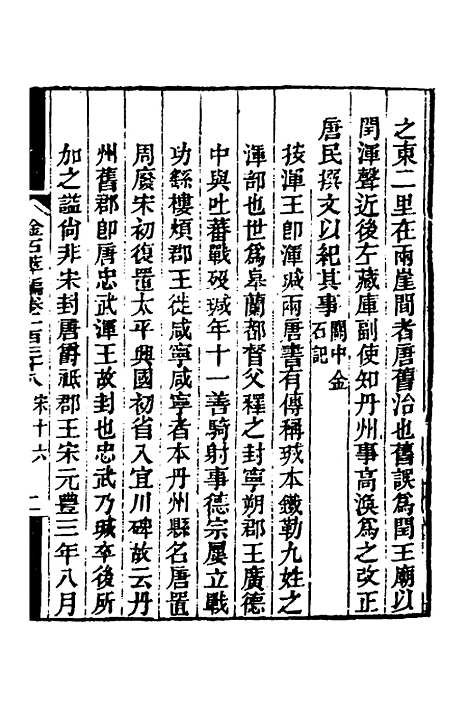 之東二里在兩崖間者唐舊治也舊誤爲閏王廟以
閏渾聲近後左藏庫副使知丹州事高渙爲之改正
唐民撰文以紀其事關中金石記
按渾王卽渾瑊兩唐書有傳稱瑊本鐵勒九姓之
渾部也世爲皋蘭都督父釋之封寧朔郡王廣德
中與吐蕃戰歿瑊年十一善騎射事德宗屢立戰
功繇樓煩郡王徙咸寧咸寧者本丹州縣名唐置
周廢宋初復置太平興國初省入宜川碑故云丹
州舊郡卽唐忠武渾王故封也忠武乃瑊卒後所
加之謚尙非宋封唐爵祇郡王宋元豐三年八月
金石萃編卷一百三十八 宋十六 二